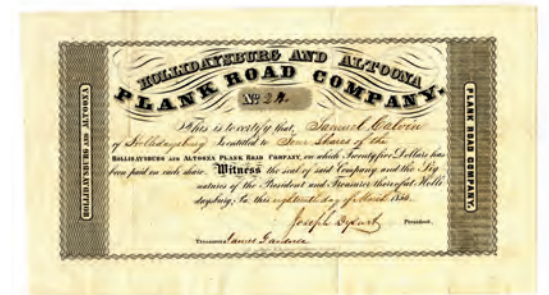 HOLLIDAYSBURG AND ALTOONA
PLANK ROAD COMPANY.
No. 24.
This is to certify that, Samuel Calvin
of Hollidaysburg is entitled to Four Shares of the
HOLLIDAYSBURG AND ALTOONA PLANK ROAD COMPANY, on which Twenty five Dollars has
been paid on each share. Witness the seal of said Company and the Sig
natures of the President and Treasurer thereof at Holli
daysburg, Pa. this eighteenth day of March
Joseph Dysart President.
Treasurer James Gardner
HOLLIDAYSBURG AND ALTOONA
PLANK ROAD COMPANY.